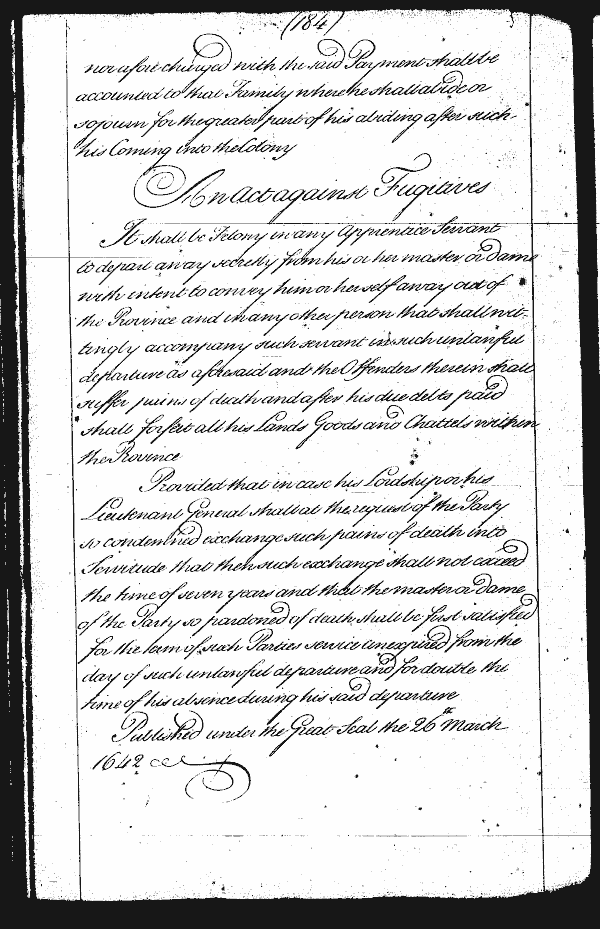 (184)
nor afore charged with the said Payment shall be
accounted to that Family where he shall abide or
sojourn for the greater part of his abiding after such
his Coming into the Colony
An Act against Fugitives
It shall be Felony in any Apprentice Servant
to depart away secretly from his or her master or dame
with intent to convey him or her self away out of
the Province and in any other person that shall wit-
tingly accompany such servant in such unlawful
departure as aforesaid and the Offenders therein shall
suffer pains of death and after his due debts paid
shall forfeit all his Lands Goods and Chattels within
the Province
Provided that in case his Lordship or his
Lieutenant General shall at the request of the Party
so condemned exchange such pains of death into
Servitude that then such exchange shall not exceed
the time of seven years and that the master or dame
of the Party so pardoned of death shall be first satisfied
for the term of such Parties service unexpired from the
day of such unlawful departure and for double the
time of his absence during his said departure
Published under the Great Seal the 26th March
1642